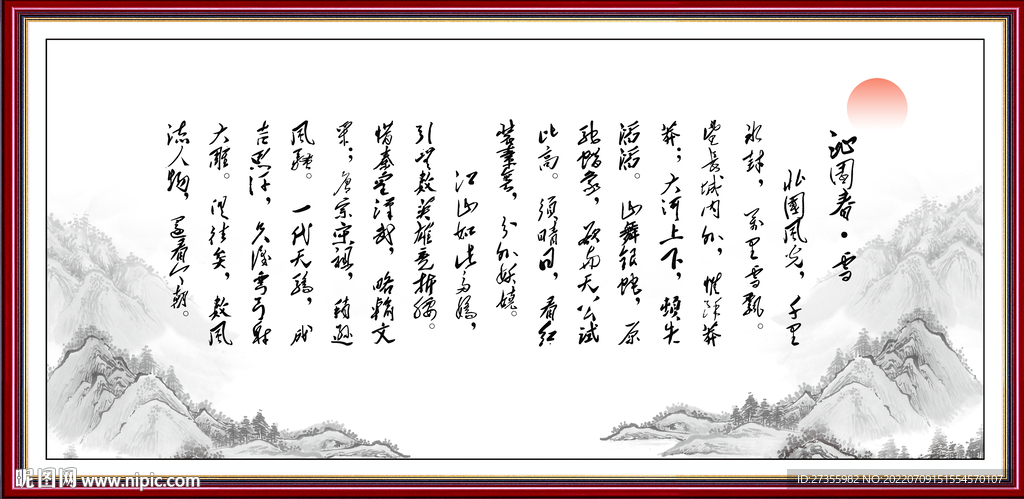 沁園春·雪
北國風光，千里
冰封，萬里雪飄。
望長城内外，惟餘莽
莽；大河上下，頓失
滔滔。山舞銀蛇，原
馳蠟象，欲與天公試
比高。須晴日，看紅
裝素裹，分外妖嬈。
江山如此多嬌，
引無數英雄競折腰。
惜秦皇漢武，略輸文
采；唐宗宋祖，稍遜
風騷。一代天驕，成
吉思汗，只識彎弓射
大雕。俱往矣，數風
流人物，還看今朝。
昵图网 www.nipic.com
ID:27355982 NO:20220709151554570107